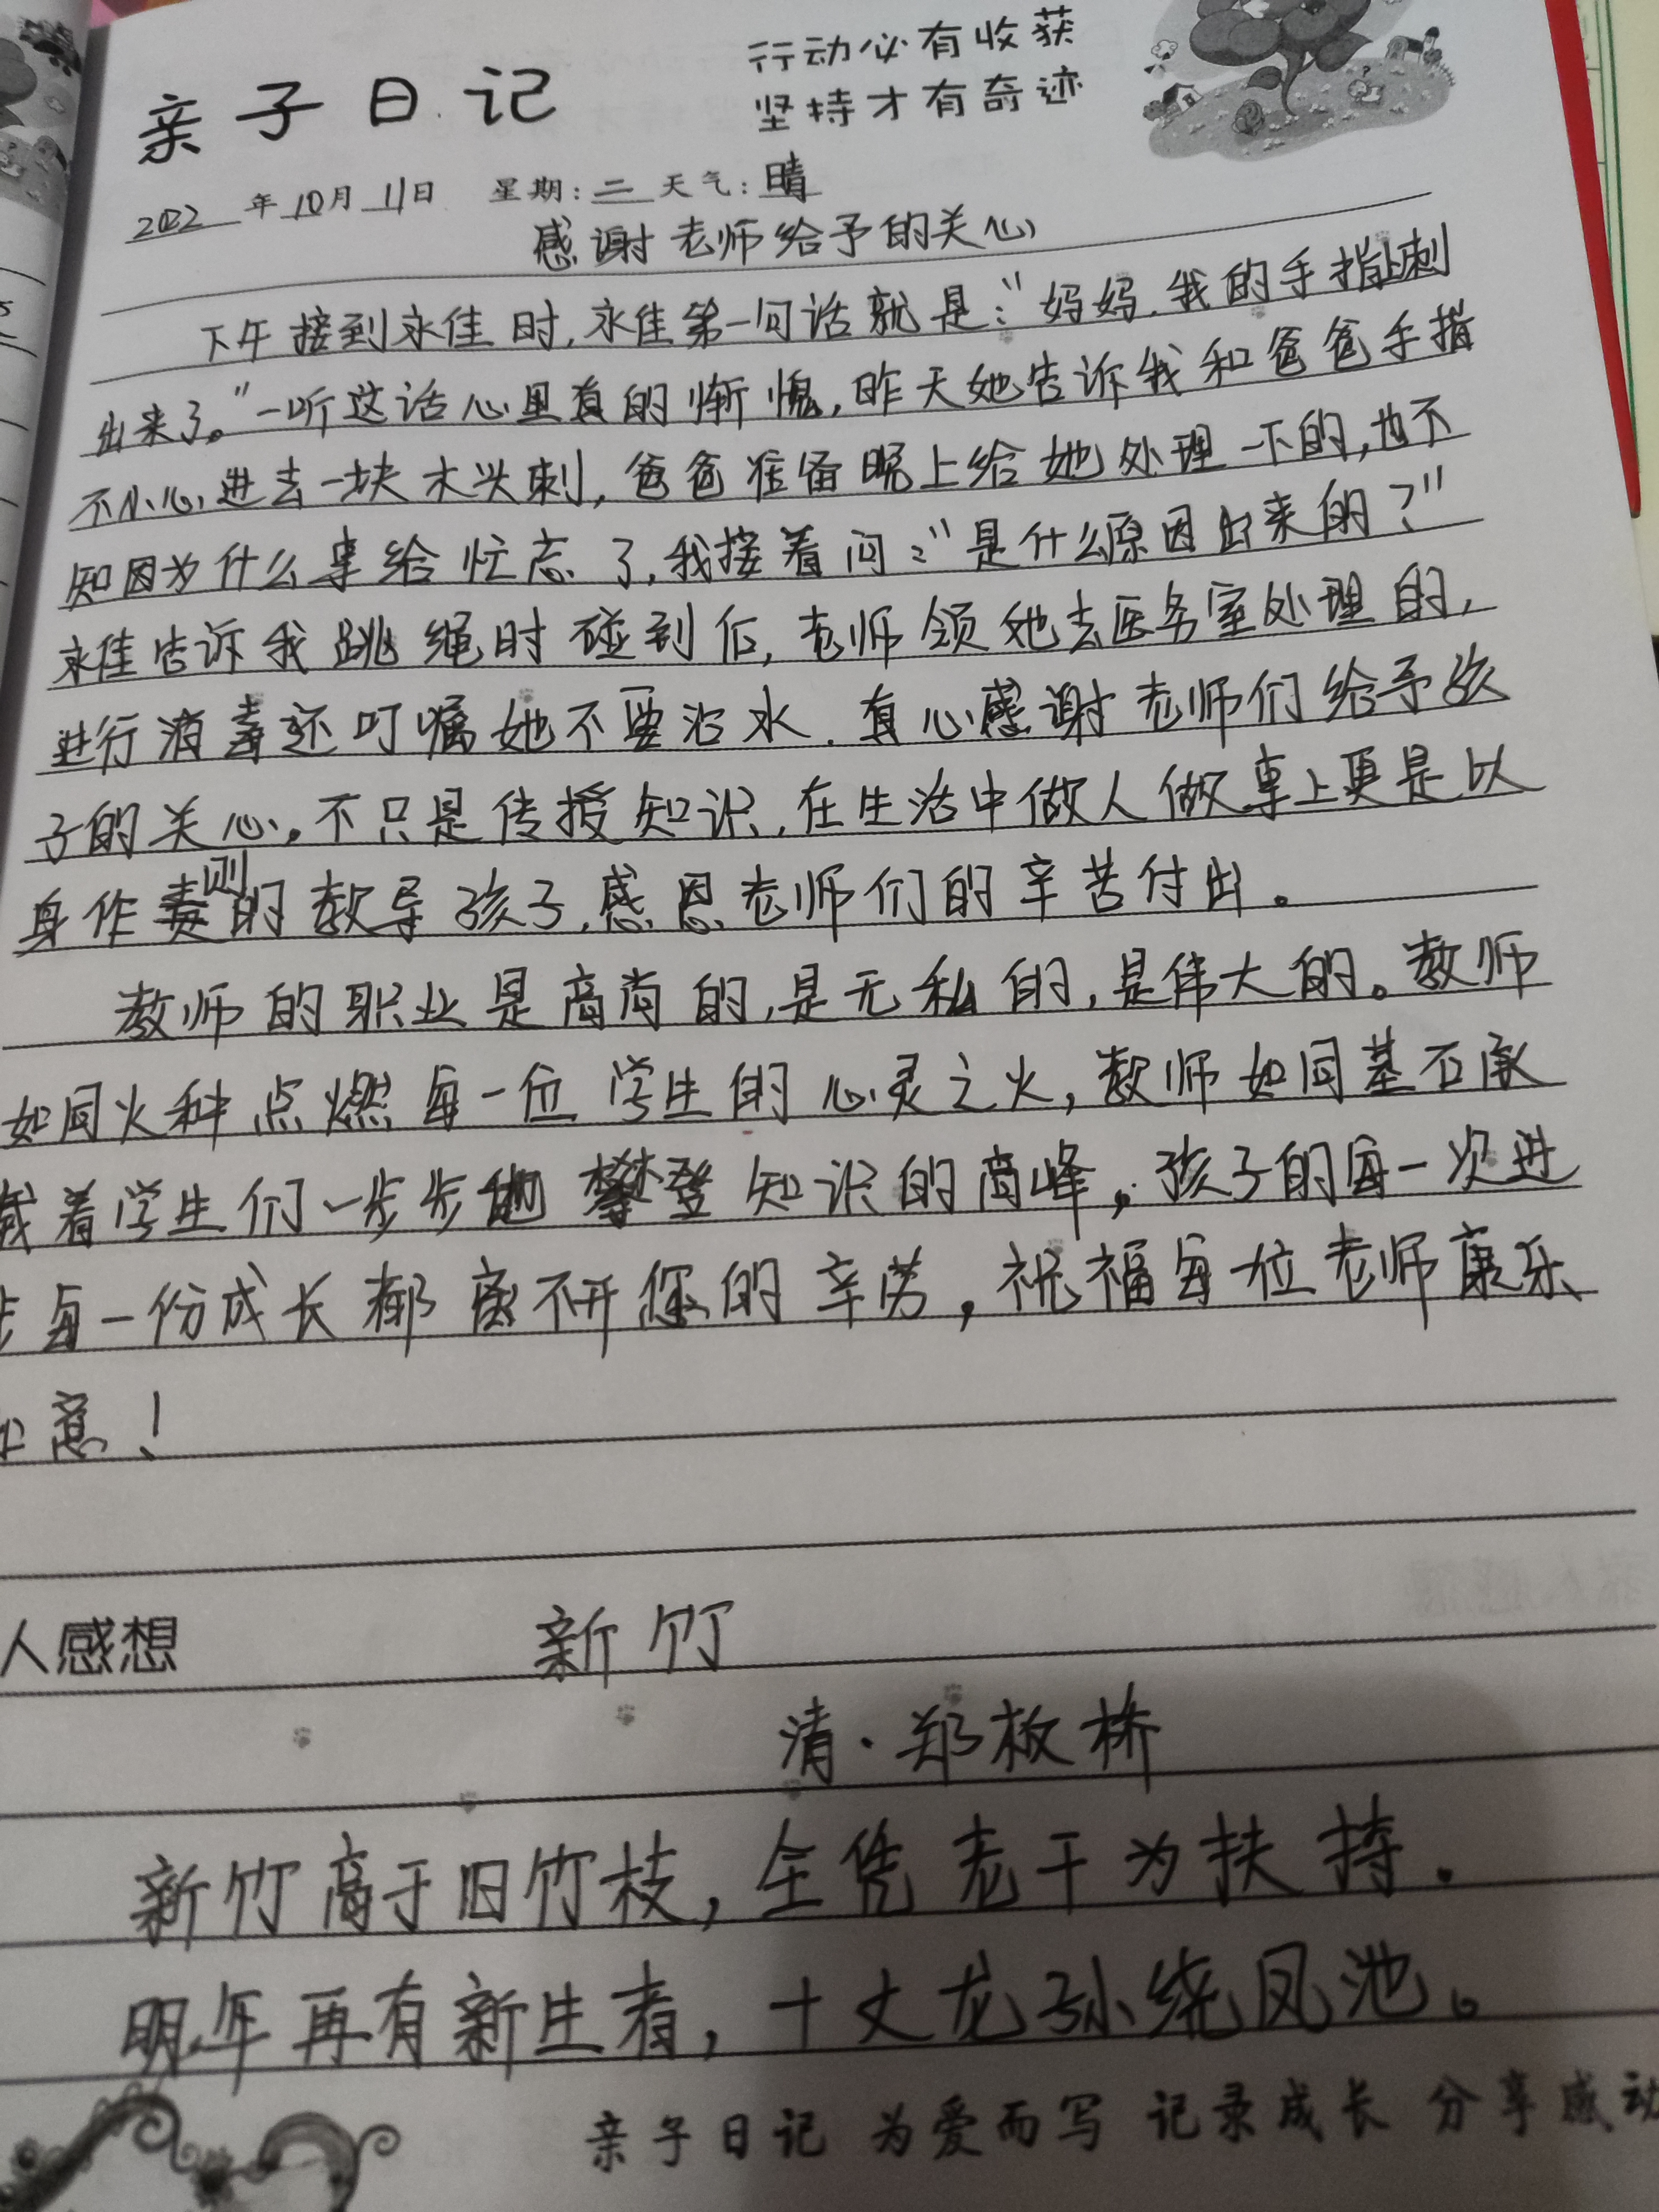 亲子日记
行动必有收获
坚持才有奇迹
2022年10月11日 星期:二 天气:晴
感谢老师给予的关心
下午接到永佳时,永佳第一句话就是:"妈妈,我的手指上刺
出来了。"一听这话心里真的惭愧,昨天她告诉我和爸爸手指
不小心进去一块木头刺,爸爸准备晚上给她处理一下的,也不
知因为什么事给忙忘了,我接着问:"是什么原因出来的?"
永佳告诉我跳绳时碰到后,老师领她去医务室处理的,
进行消毒还叮嘱她不要沾水.真心感谢老师们给予孩
子的关心。不只是传授知识,在生活中做人做事上更是以
身作则的教导孩子,感恩老师们的辛苦付出。
教师的职业是高尚的,是无私的,是伟大的。教师
如同火种点燃每一位学生的心灵之火,教师如同基石承
载着学生们一步步地攀登知识的高峰。孩子的每一次进
步每一份成长都离不开您的辛劳,祝福每一位老师康乐
如意!
人感想 新竹
清·郑板桥
新竹高于旧竹枝,全凭老干为扶持.
明年再有新生者,十丈龙孙绕凤池。
亲子日记 为爱而写 记录成长 分享感动